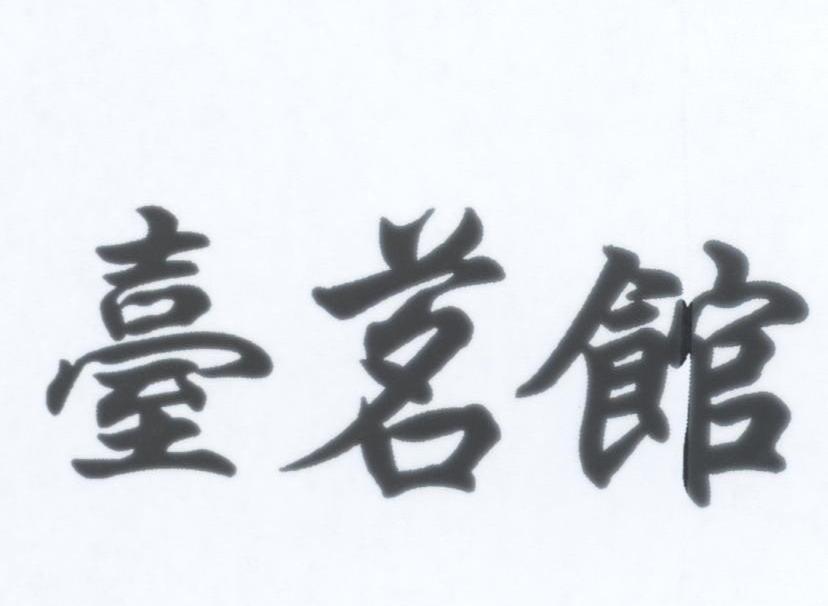 臺茗館